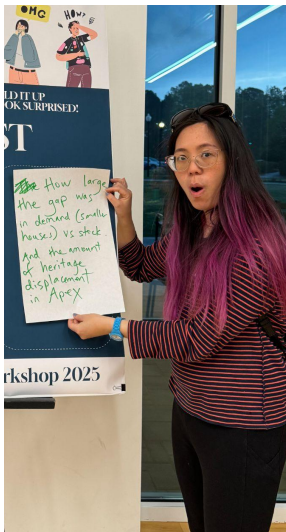 OMG
HOW?
LD IT UP
OOK SURPRISED!
ST
How large
the gap was
in demand (smaller
houses) vs stock
and the amount
of heritage
displacement
in Apex
rkshop 2025